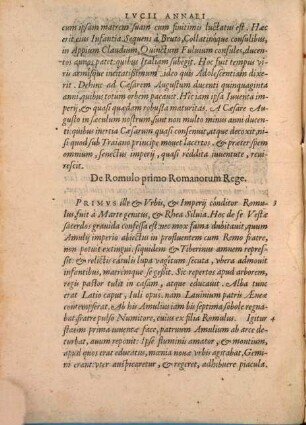 LVCII ANNAEI
cum ipsam matrem suam cum finitimis luctatus est. Hæc
erit eius Infantia. Sequens à Bruto, Collatinoque consulibus,
in Appium Claudium, Quinctum Fuluium consules, ducen
tos annos patet, quibus Italiam subegit. Hoc fuit tempus vi
ris armisque incitatissimum, ideo quis Adolescentiam dixe
rit. Dehinc ad Cæsarem Augustum ducenti quinquaginta
anni, quibus totum orbem pacauit. Hic iam ipsa iuuenta im
perij, & quasi quædam robusta maturitas. A Cæsare Augu
sto in sæculum nostrum, sunt non multo minus anni ducen
ti: quibus inertia Cæsarum quasi consenuit, atque decoxit, ni
si quòd sub Traiano principe mouet lacertos, & præter spem
omnium, senectus imperij, quasi reddita iuuentute, reui-
rescit.
De Romulo primo Romanorum Rege.
PRIMVS ille & Vrbis, & Imperij conditor Romu- 3
lus, fuit à Marte genitus, & Rhea Siluia. Hoc de se Vestæ
sacerdos grauida confessa est: nec mox fama dubitauit, quum
Amulij imperio abiectus in profluentem cum Remo fratre,
non potuit extingui: siquidem & Tiberinus amnem repres-
sit: & relictis catulis lupa vagitum secuta, vbera admouit
infantibus, matrémque se gessit. Sic repertos apud arborem,
regis pastor tulit in casam, atque educauit. Alba tunc
erat Latio caput, Iuli opus. nam Lauinium patris Æneæ
contempserat. Ab his Amulius iam bis septima sobole regna
bat, fratre pulso Numitore, cuius ex filia Romulus. Igitur 4
statim prima iuuentæ face, patruum Amulium ab arce de-
turbat, auum reponit: Ipse fluminis amator, & montium,
apud quos erat educatus, mœnia nouæ vrbis agitabat. Gemi-
ni erant: vter auspicaretur, & regeret, adhibuere piacula.